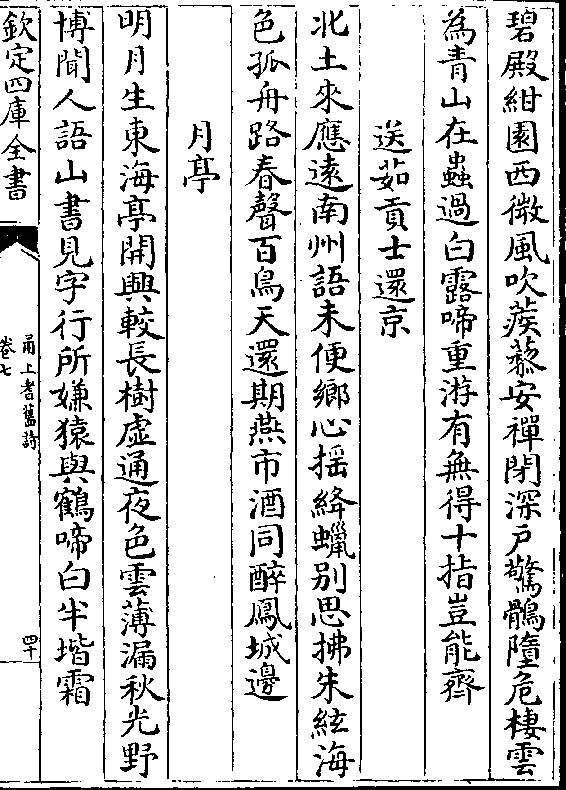 碧殿紺園西微風吹蒺藜安禪閉深戶驚鶻墮危棲雲
為青山在蟲過白露啼重游有無得十指豈能齊
送茹貢士還京
北土來應遠南州語未便鄉心揺絳蠟别思拂朱絃海
色孤舟路春聲百鳥天還期燕市酒同醉鳳城邊
月亭
明月生東海亭開興較長樹虛通夜色雲薄漏秋光野
博聞人語山書見字行所嫌猿與鶴啼白半堦霜
欽定四庫全書
甬上耆舊詩
卷七
四十